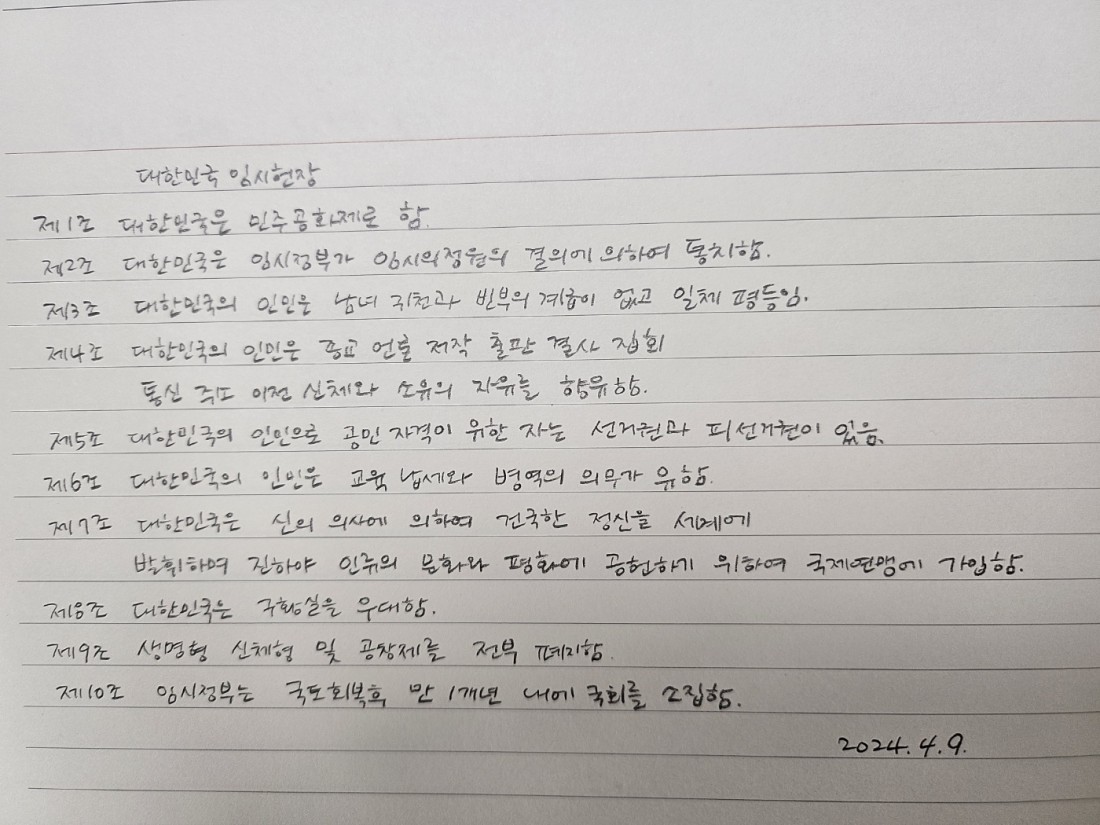 대한민국 임시헌장
제1조 대한민국은 민주공화제로 함.
제2조 대한민국은 임시정부가 임시의정원의 결의에 의하여 통치함.
제3조 대한민국의 인민은 남녀 귀천과 빈부의 계급이 없고 일체 평등임.
제4조 대한민국의 인민은 종교 언론 저작 출판 결사 집회
통신 주소 이전 신체와 소유의 자유를 향유함.
제5조 대한민국의 인민으로 공민 자격이 위한 자는 선거권과 피선거권이 있음.
제6조 대한민국의 인민은 교육 납세와 병역의 의무가 유함.
제7조 대한민국은 신의 의사에 의하여 건국한 정신을 세계에
발휘하며 진하야 인류의 문화와 평화에 공헌하기 위하여 국제연맹에 가입함.
제8조 대한민국은 구황실을 우대함.
제9조 생명형 신체형 및 공창제를 전부 폐지함.
제10조 임시정부는 국토회복후 만 1개년 내에 국회를 소집함.
2024.4.9.